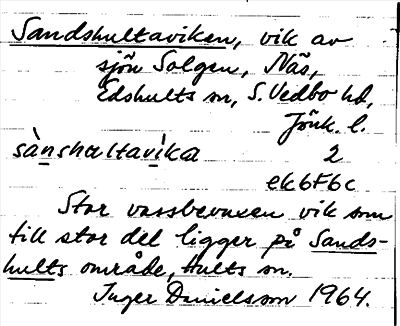 Sandshultaviken, vik av
sjön Solgen, Näs,
Edshults sn, S. Vedbo hd,
Jönk. l.
sànshaltavika 2
ek6F6c
Stor vassbevuxen vik som
till stor del ligger på Sands-
hults område, Hults sn.
Inger Danielsson 1964.